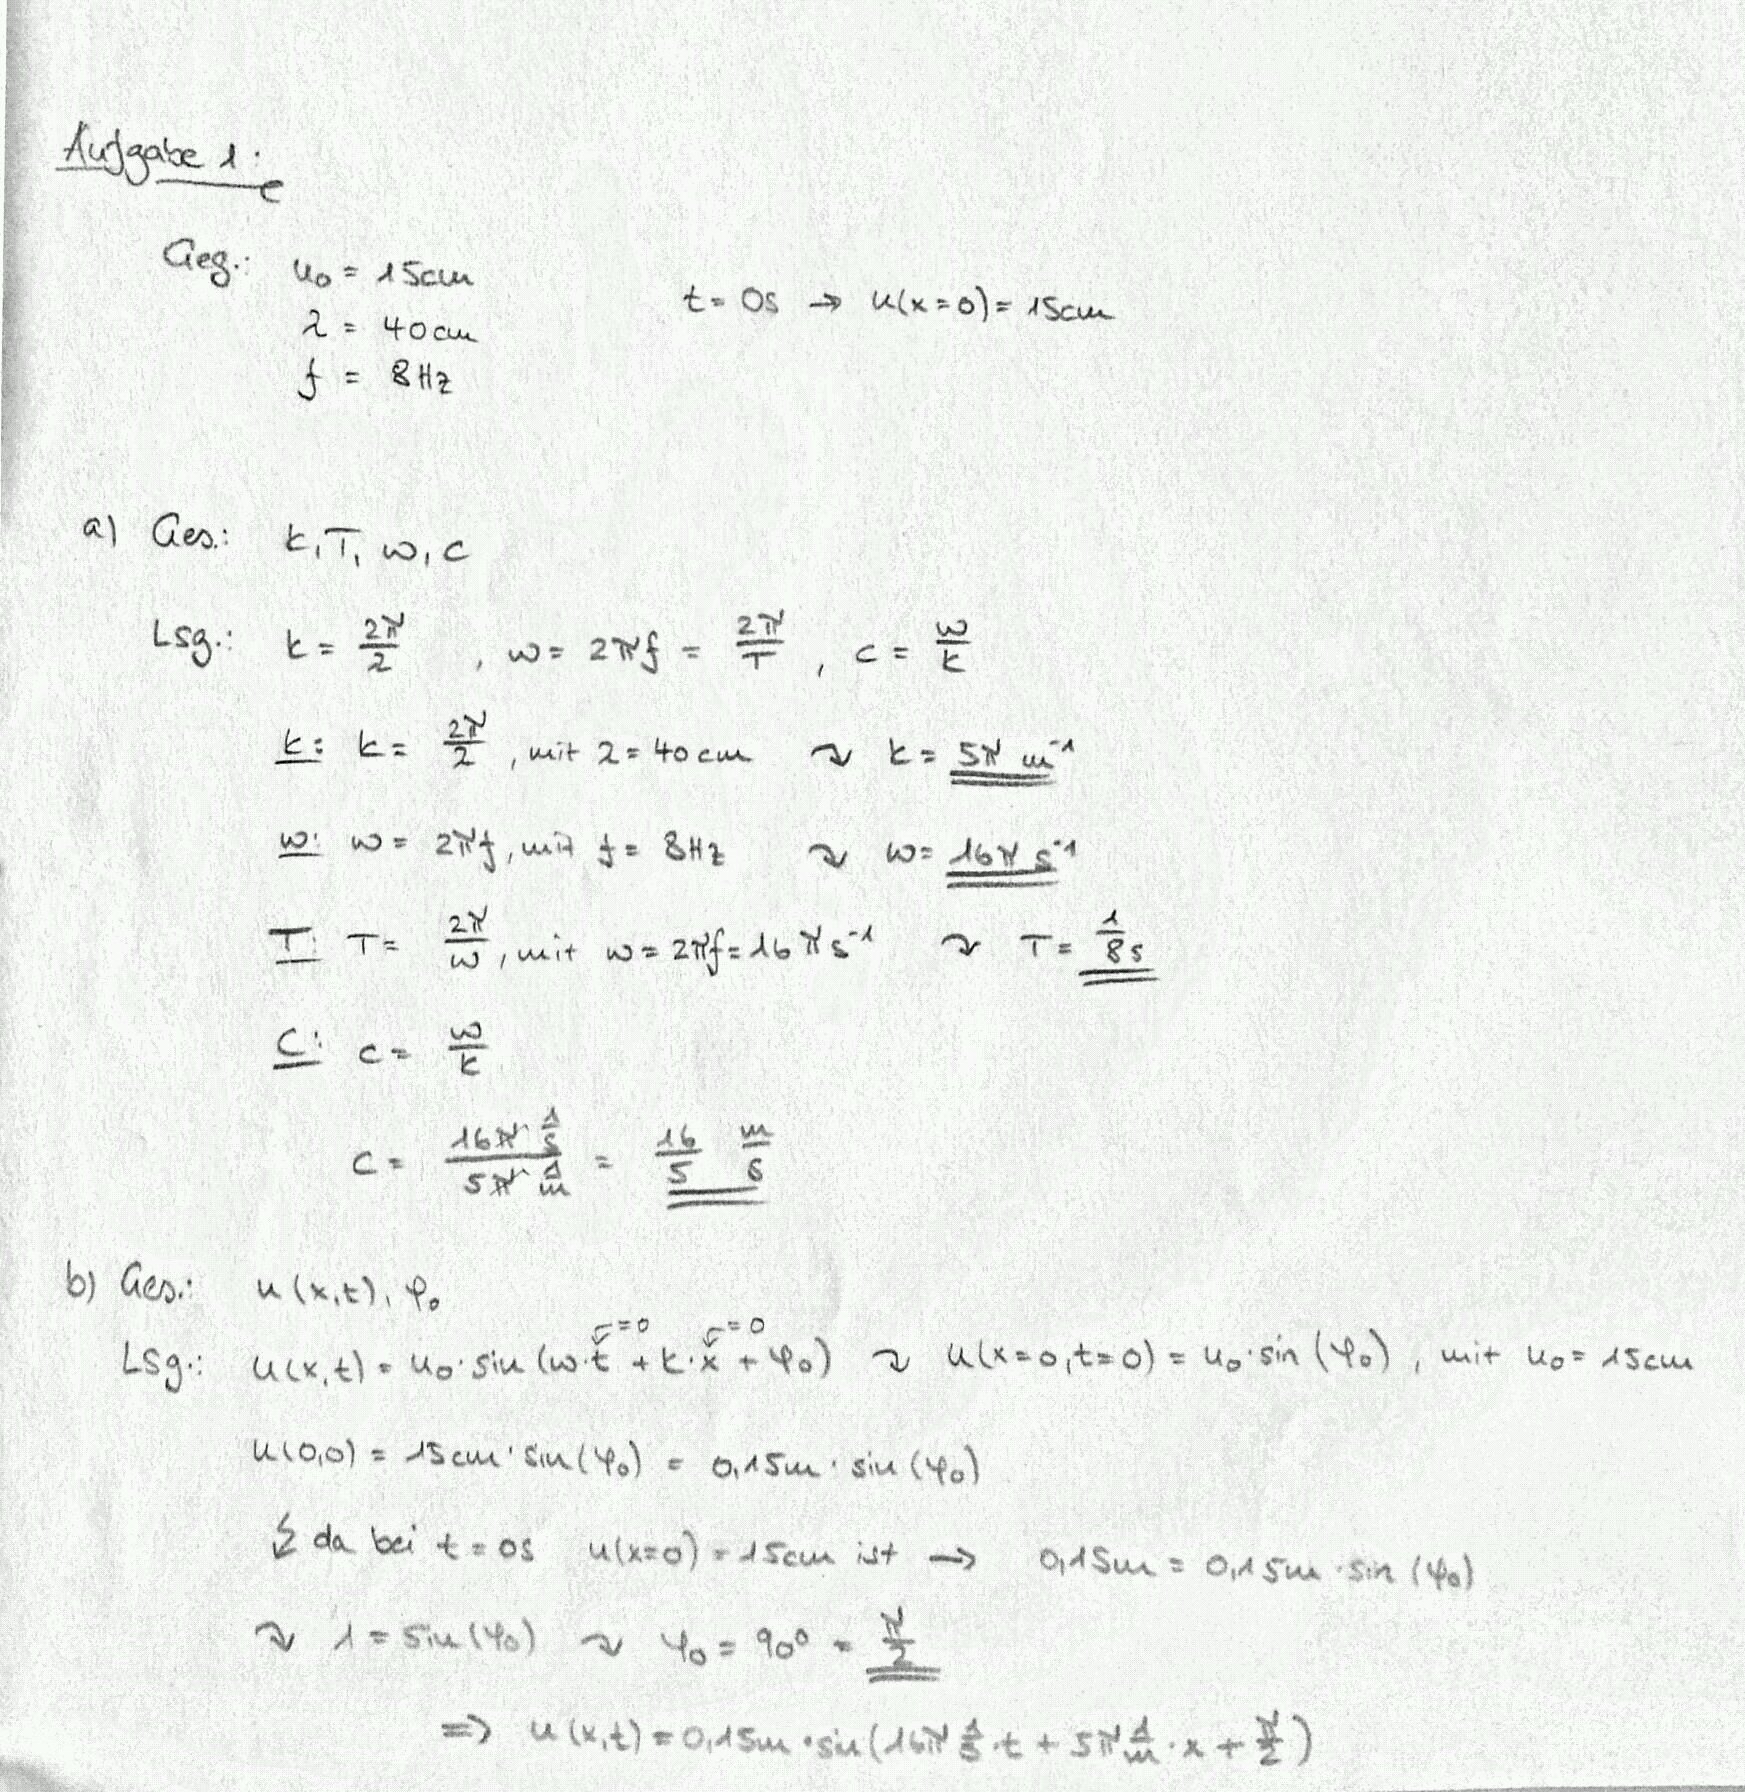 Aufgabe 1:
Geg.: u₀ = 15cm
t = 0s → u(x=0) = 15cm
λ = 40cm
f = 8Hz
a) Ges.: k, T, ω, c
Lsg.: k = 2π/λ , ω = 2πf = 2π/T , c = ω/k
k: k = 2π/λ , mit λ = 40cm ↷ k = 5π m⁻¹
ω: ω = 2πf, mit f = 8Hz ↷ ω = 16π s⁻¹
T: T = 2π/ω , mit ω = 2πf = 16π s⁻¹ ↷ T = 1/8 s
C: c = ω/k
c = (16π 1/s)/(5π 1/m) = 16/5 m/s
b) Ges.: u(x,t), φ₀
=0 =0
Lsg.: u(x,t) = u₀·sin(ω·t + k·x + φ₀) ↷ u(x=0,t=0) = u₀·sin(φ₀) , mit u₀ = 15cm
u(0,0) = 15cm·sin(φ₀) = 0,15m·sin(φ₀)
↯ da bei t = 0s u(x=0) = 15cm ist → 0,15m = 0,15m·sin(φ₀)
↷ 1 = sin(φ₀) ↷ φ₀ = 90° = π/2
⇒ u(x,t) = 0,15m·sin(16π 1/s·t + 5π 1/m·x + π/2)